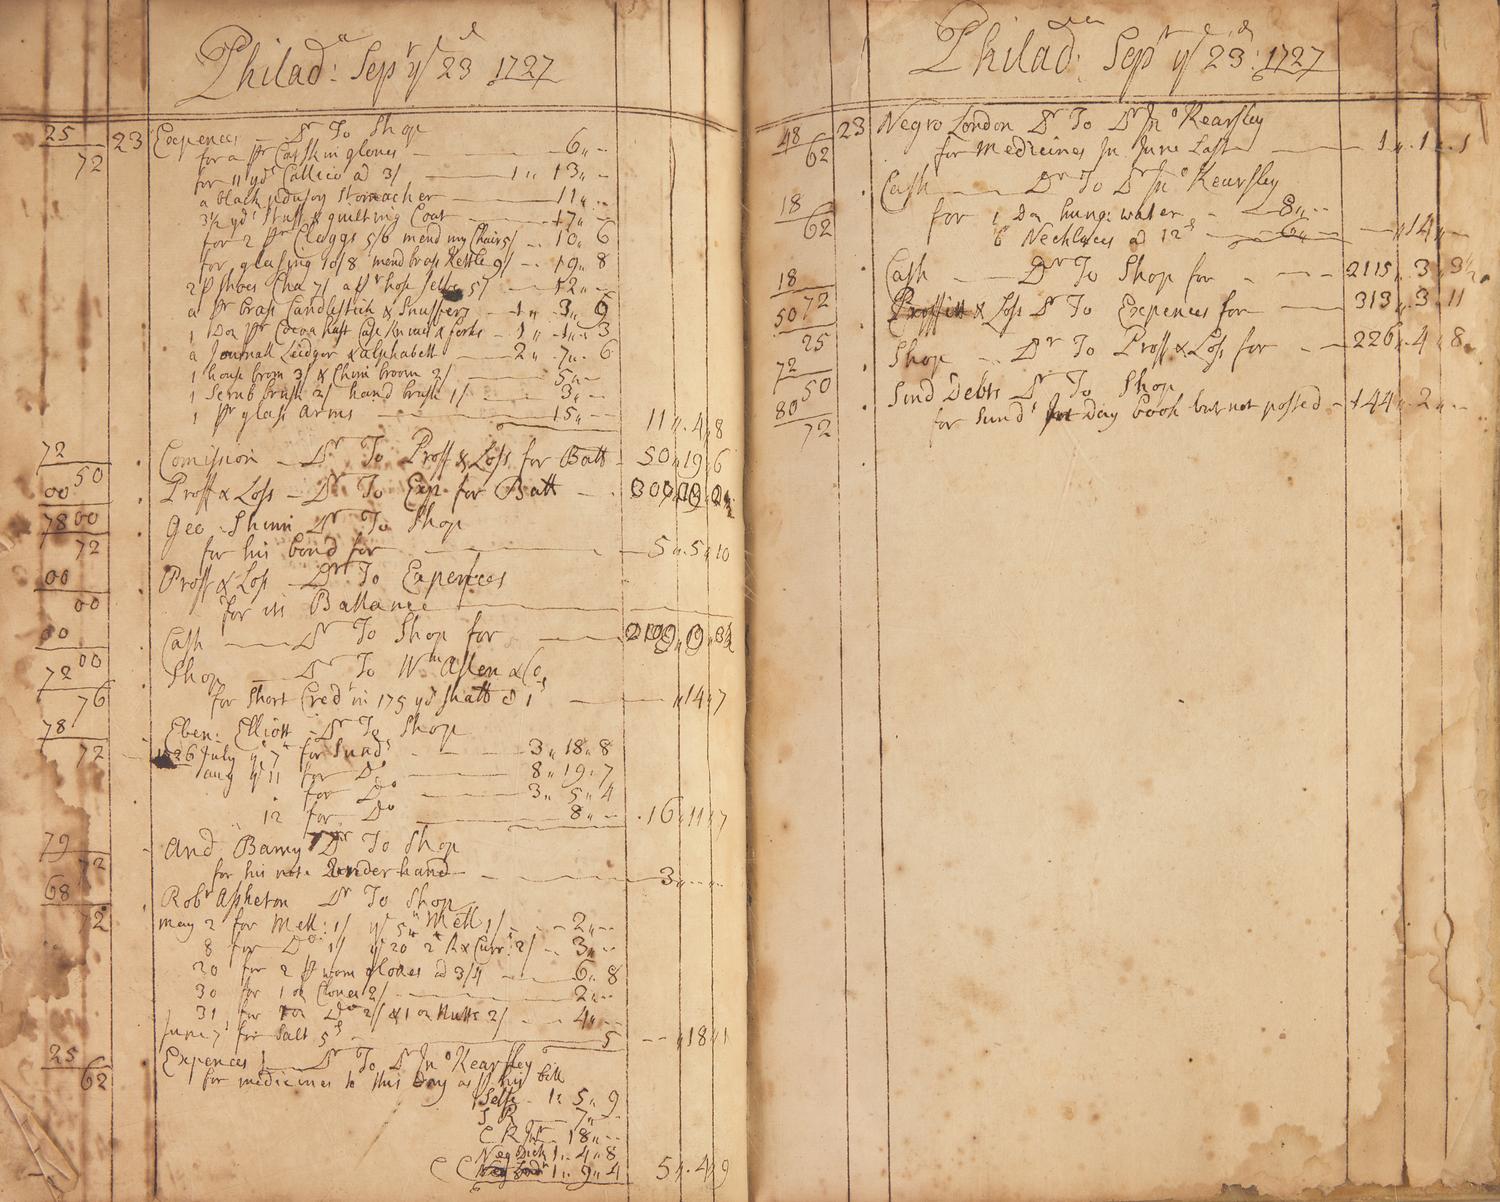 Philad.a: Sepr ye 23d 1727
25/72 23 Expences Dr To Shop
for a pr Cat Skin gloves 6,, --
for 11 yds Callico ad 3/ 1,, 13,, --
a black Stomacher 11,, --
3½ yds Stuff & quilting Coat 17,, --
for 2 pr Cloggs 5/6 mend my Chairs 5/ 10,, 6
for glasing 10/8 mend brass Kettle 9/ 19,, 8
2 p Shoes 7/ a pr 5/ 12,, --
a pr brass Candlestick & Snuffers 1,, 3,, 9
1 Doz pr Cocoa haft Case knives & forks 1,, 1,, 3
a Journall Leidger & alphabett 2,, 7,, 6
1 house broom 3/ & Chim broom 2/ 5,, --
1 Scrub brush 2/ hand brush 1/ 3,, --
1 pr glass arms 15,, -- 11,, 4,, 8
72/50 Comission Dr To Proff & Loss for Batt 50,, 19,, 6
00 Proff & Loss Dr To Exp. for Batt
78/72 Geo Shinn Dr To Shop
for his bond for 5,, 5,, 10
00/00 Proff & Loss Dr To Expences
for its Ballance
00/00 Cash Dr To Shop for
72/76 Shop Dr To Wm Allen & Co.
for Short Credt in 175 yds ,,14,, 7
78/72 Eben: Elliott Dr To Shop
1726 July ye 7 for Sunds 3,, 18,, 8
aug ye 11 for Do 8,, 19,, 7
for Do 3,, 5,, 4
12 for Do 8,, -- 16,, 11,, 7
79/72 And Barny Dr To Shop
for his note under hand 3,, --
68/72 Robt Assheton Dr To Shop
may 2 for Mell: 1/ ye 5 Mell 1/ 2,, --
8 for Do 1/ ye 20 2/ 3,, --
20 for 2 pr wom gloves ad 3/4 6,, 8
30 for 1 oz Cloves 2/ 2,, --
31 for 1 oz Do 2/ & 1 oz Nutts 2/ 4,, --
June 7 for Salt 5d 5 ,,18,, 1
25/62 Expences Dr To Dr Jno Kearsley
for medicines to this Day as pr his bill
Selfe 1,, 5,, 9
S R 7,, --
C R 18,, --
Neg Dick 1,, 4,, 8
1,, 9,, 4 5,, 4,, 9
Philada: Sepr ye 23d: 1727
48/62 23 Negro London Dr To Dr Jno Kearsley
for Medicines In June Last 1,, 1,, 1
18/62 Cash Dr To Dr Jno Kearsley
for 1 Doz hung: water 8,, --
6 Necklaces ad 12d 6,, -- ,,14,, --
18/72 Cash Dr To Shop for 2115,, 3,, 9½
50/25 Proffitt & Loss Dr To Expences for 313,, 3,, 11
72/50 Shop Dr To Proff & Loss for 226,, 4,, 8
80/72 Sund Debts Dr To Shop
for Sunds Day book but not posted 144,, 2,, --